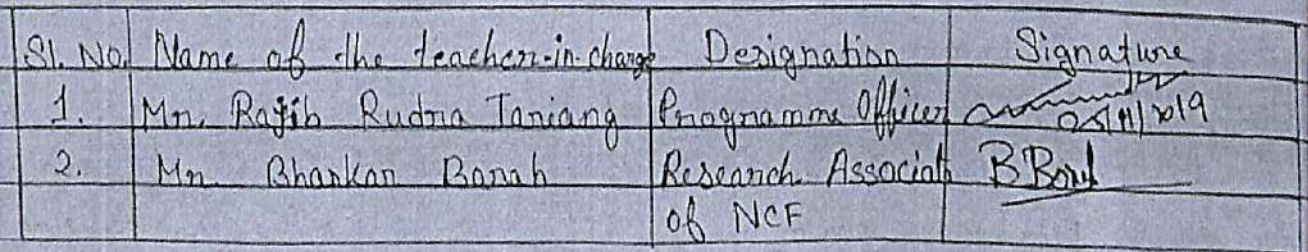 Sl. No. Name of the teacher-in-charge Designation Signature
1. Mr. Rajib Rudra Tariang Programme Officer 05/11/2019
2. Mr Bhaskar Barah Research Associate B Borah
of NCF